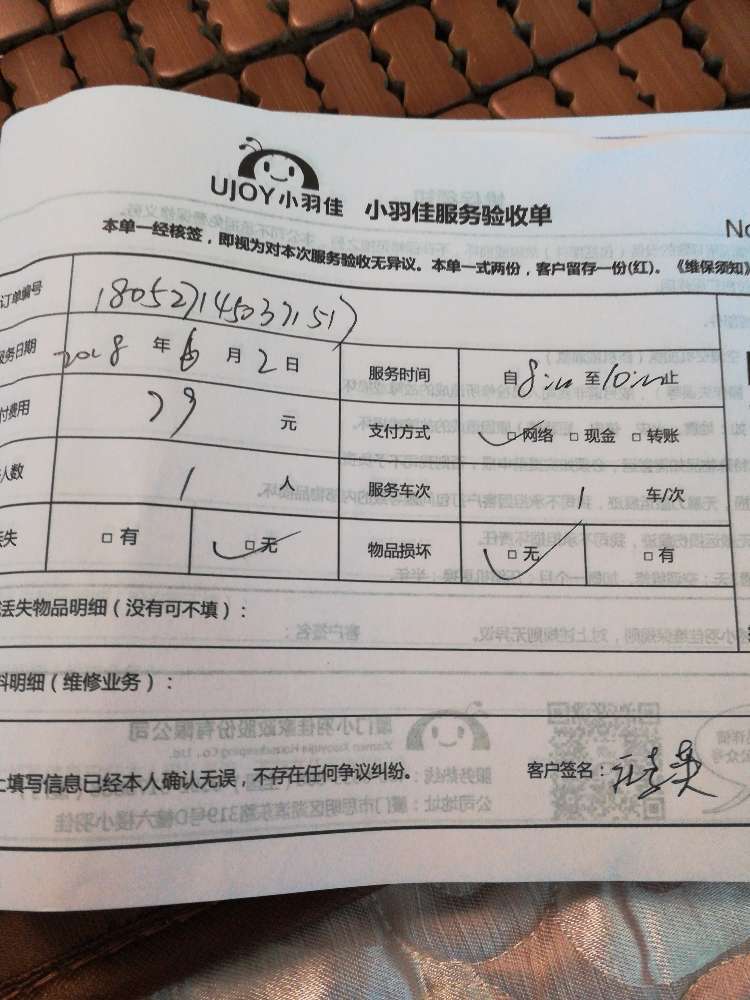 UJOY小羽佳 小羽佳服务验收单
No
本单一经核签，即视为对本次服务验收无异议。本单一式两份，客户留存一份(红)。《维保须知》
订单编号 1805271450371517
服务日期 2018 年 6 月 2 日 服务时间 自 8:00 至 10:00 止
付费用 79 元 支付方式 ✓ □ 网络 □ 现金 □ 转账
人数 1 人 服务车次 1 车/次
丢失 □ 有 ✓ □ 无 物品损坏 ✓ □ 无 □ 有
丢失物品明细（没有可不填）：
料明细（维修业务）：
上填写信息已经本人确认无误，不存在任何争议纠纷。 客户签名：